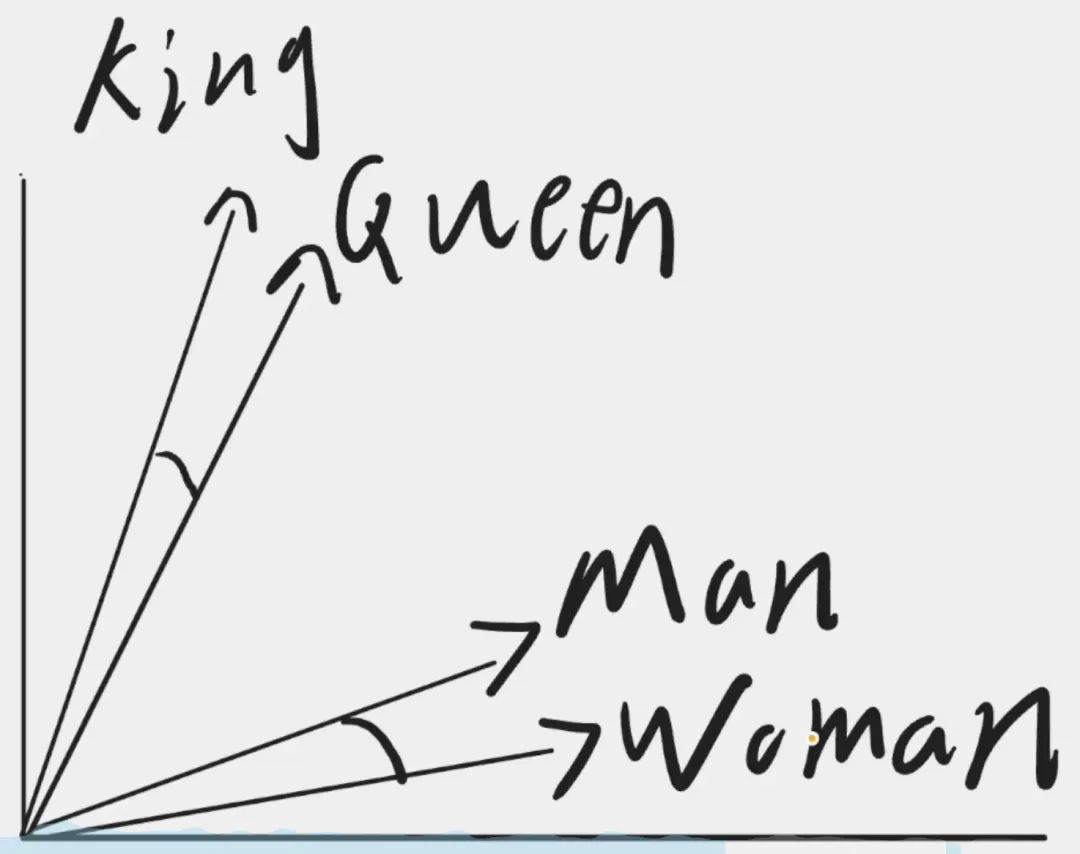 King
Queen
Man
Woman